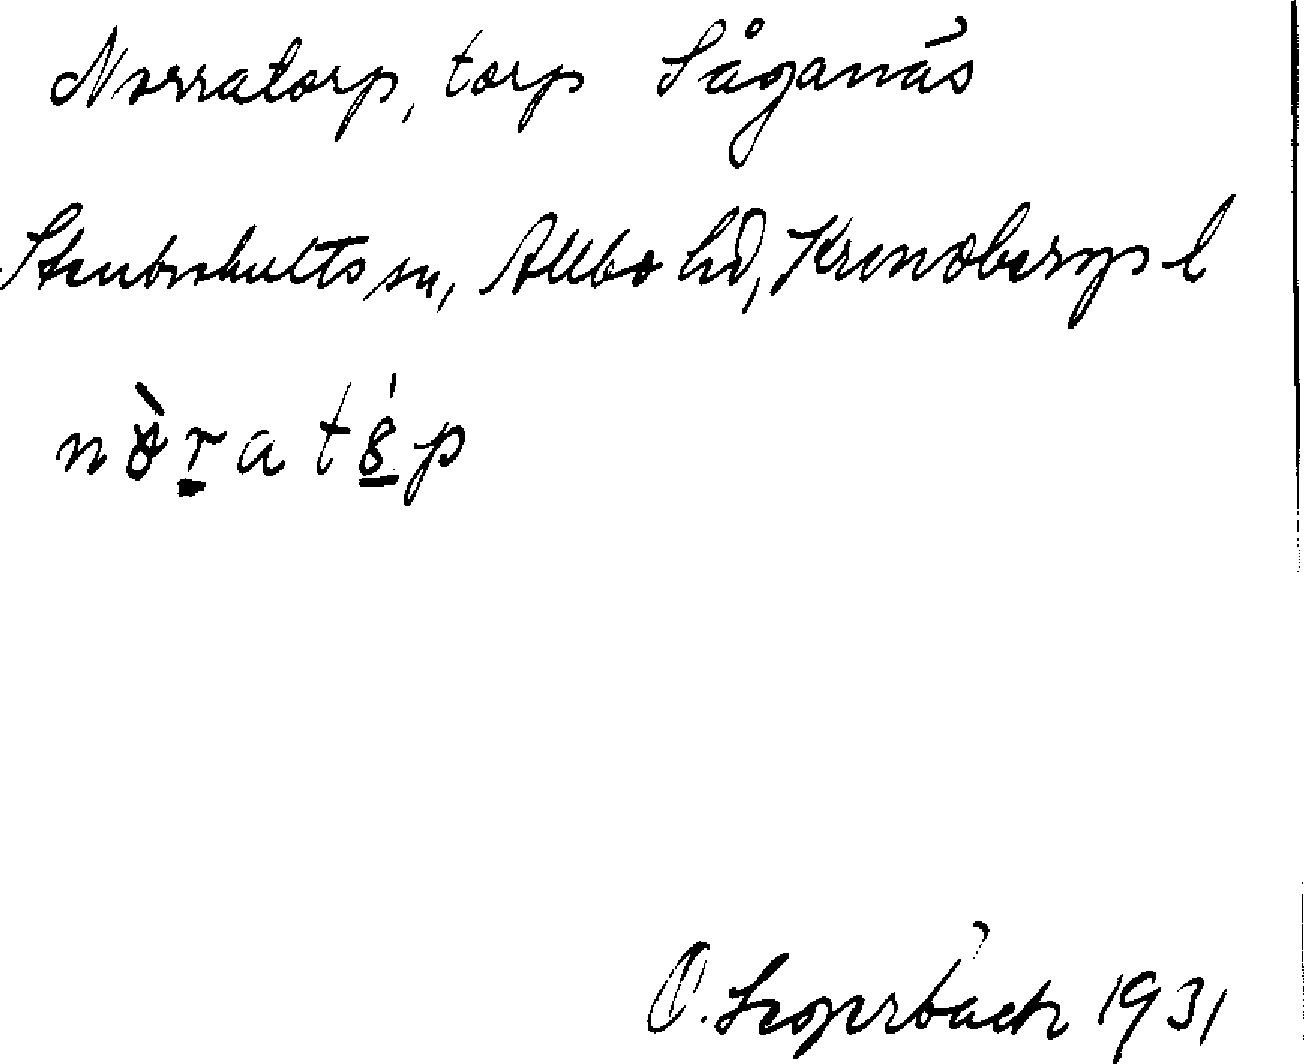 Norratorp, torp Såganäs
Stenbrohults sn, Allbo hd, Kronobergs l
O. Lagerbäck 1931